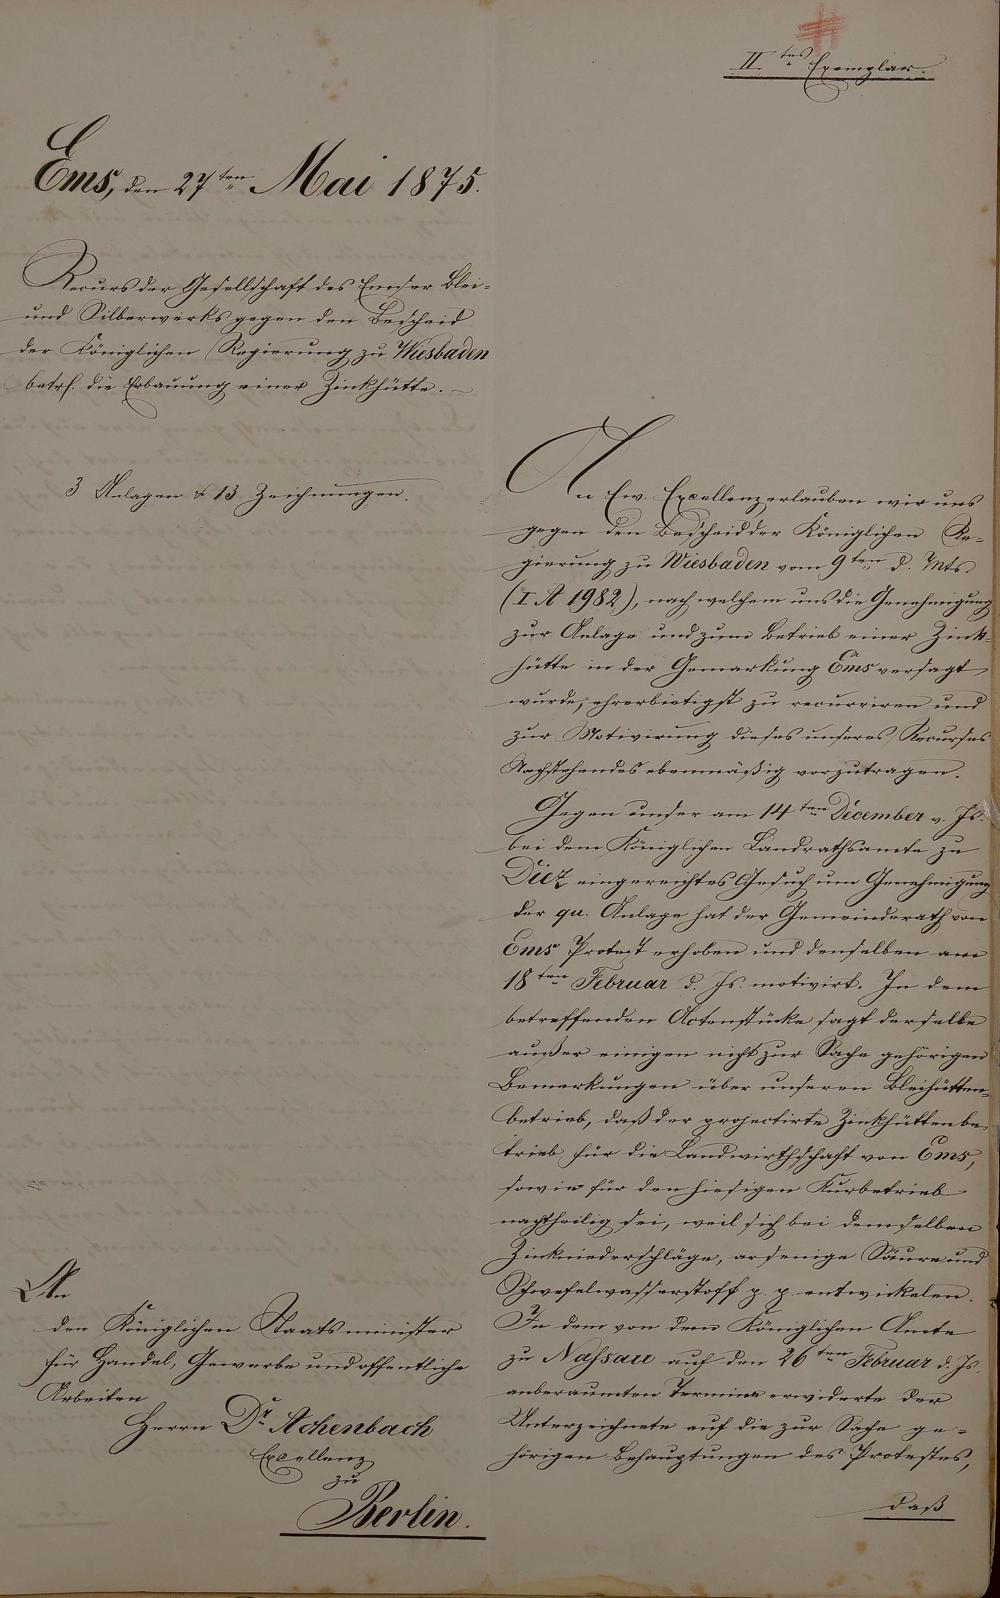 IItes Exemplar.
Ems, den 27ten Mai 1875.
Recurs der Gesellschaft des Emser Blei-
und Silberwerks gegen den Bescheid
der Königlichen Regierung zu Wiesbaden
betrf. die Erbauung einer Zinkhütte. –
3 Anlagen & 13 Zeichnungen.
An
den Königlichen Staatsminister
für Handel, Gewerbe und öffentliche
Arbeiten
Herrn Dr. Achenbach
Excellenz
zu
Berlin.
An Ew. Excellenz erlauben wir uns
gegen den Bescheid der Königlichen Re-
gierung zu Wiesbaden vom 9ten d. Mts.
(I A 1982), nach welchem uns die Genehmigung
zur Anlage und zum Betrieb einer Zink-
hütte in der Gemarkung Ems versagt
wurde, ehrerbietigst zu recurriren und
zur Motivirung dieses unseres Recurses
Nachstehendes ebenmäßig vorzutragen.
Gegen unser am 14ten December v. Js.
bei dem Königlichen Landrathsamte zu
Diez eingereichtes Gesuch um Genehmigung
der qu. Anlage hat der Gemeinderath von
Ems Protest erhoben und denselben am
18ten Februar d. Js. motivirt. In dem
betreffenden Actenstücke sagt derselbe
außer einigen nicht zur Sache gehörigen
Bemerkungen über unseren Bleihütten-
betrieb, daß der projectirte Zinkhüttenbe-
trieb für die Landwirthschaft von Ems,
sowie für den hiesigen Kurbetrieb
nachtheilig sei, weil sich bei demselben
Zinkniederschläge, arsenige Säure und
Schwefelwasserstoff p. p. entwickelen.
In dem von dem Königlichen Amte
zu Nassau auf den 26ten Februar d. Js.
anberaumten Termine erwiderte der
Unterzeichnete auf die zur Sache ge-
hörigen Behauptungen des Protestes,
daß